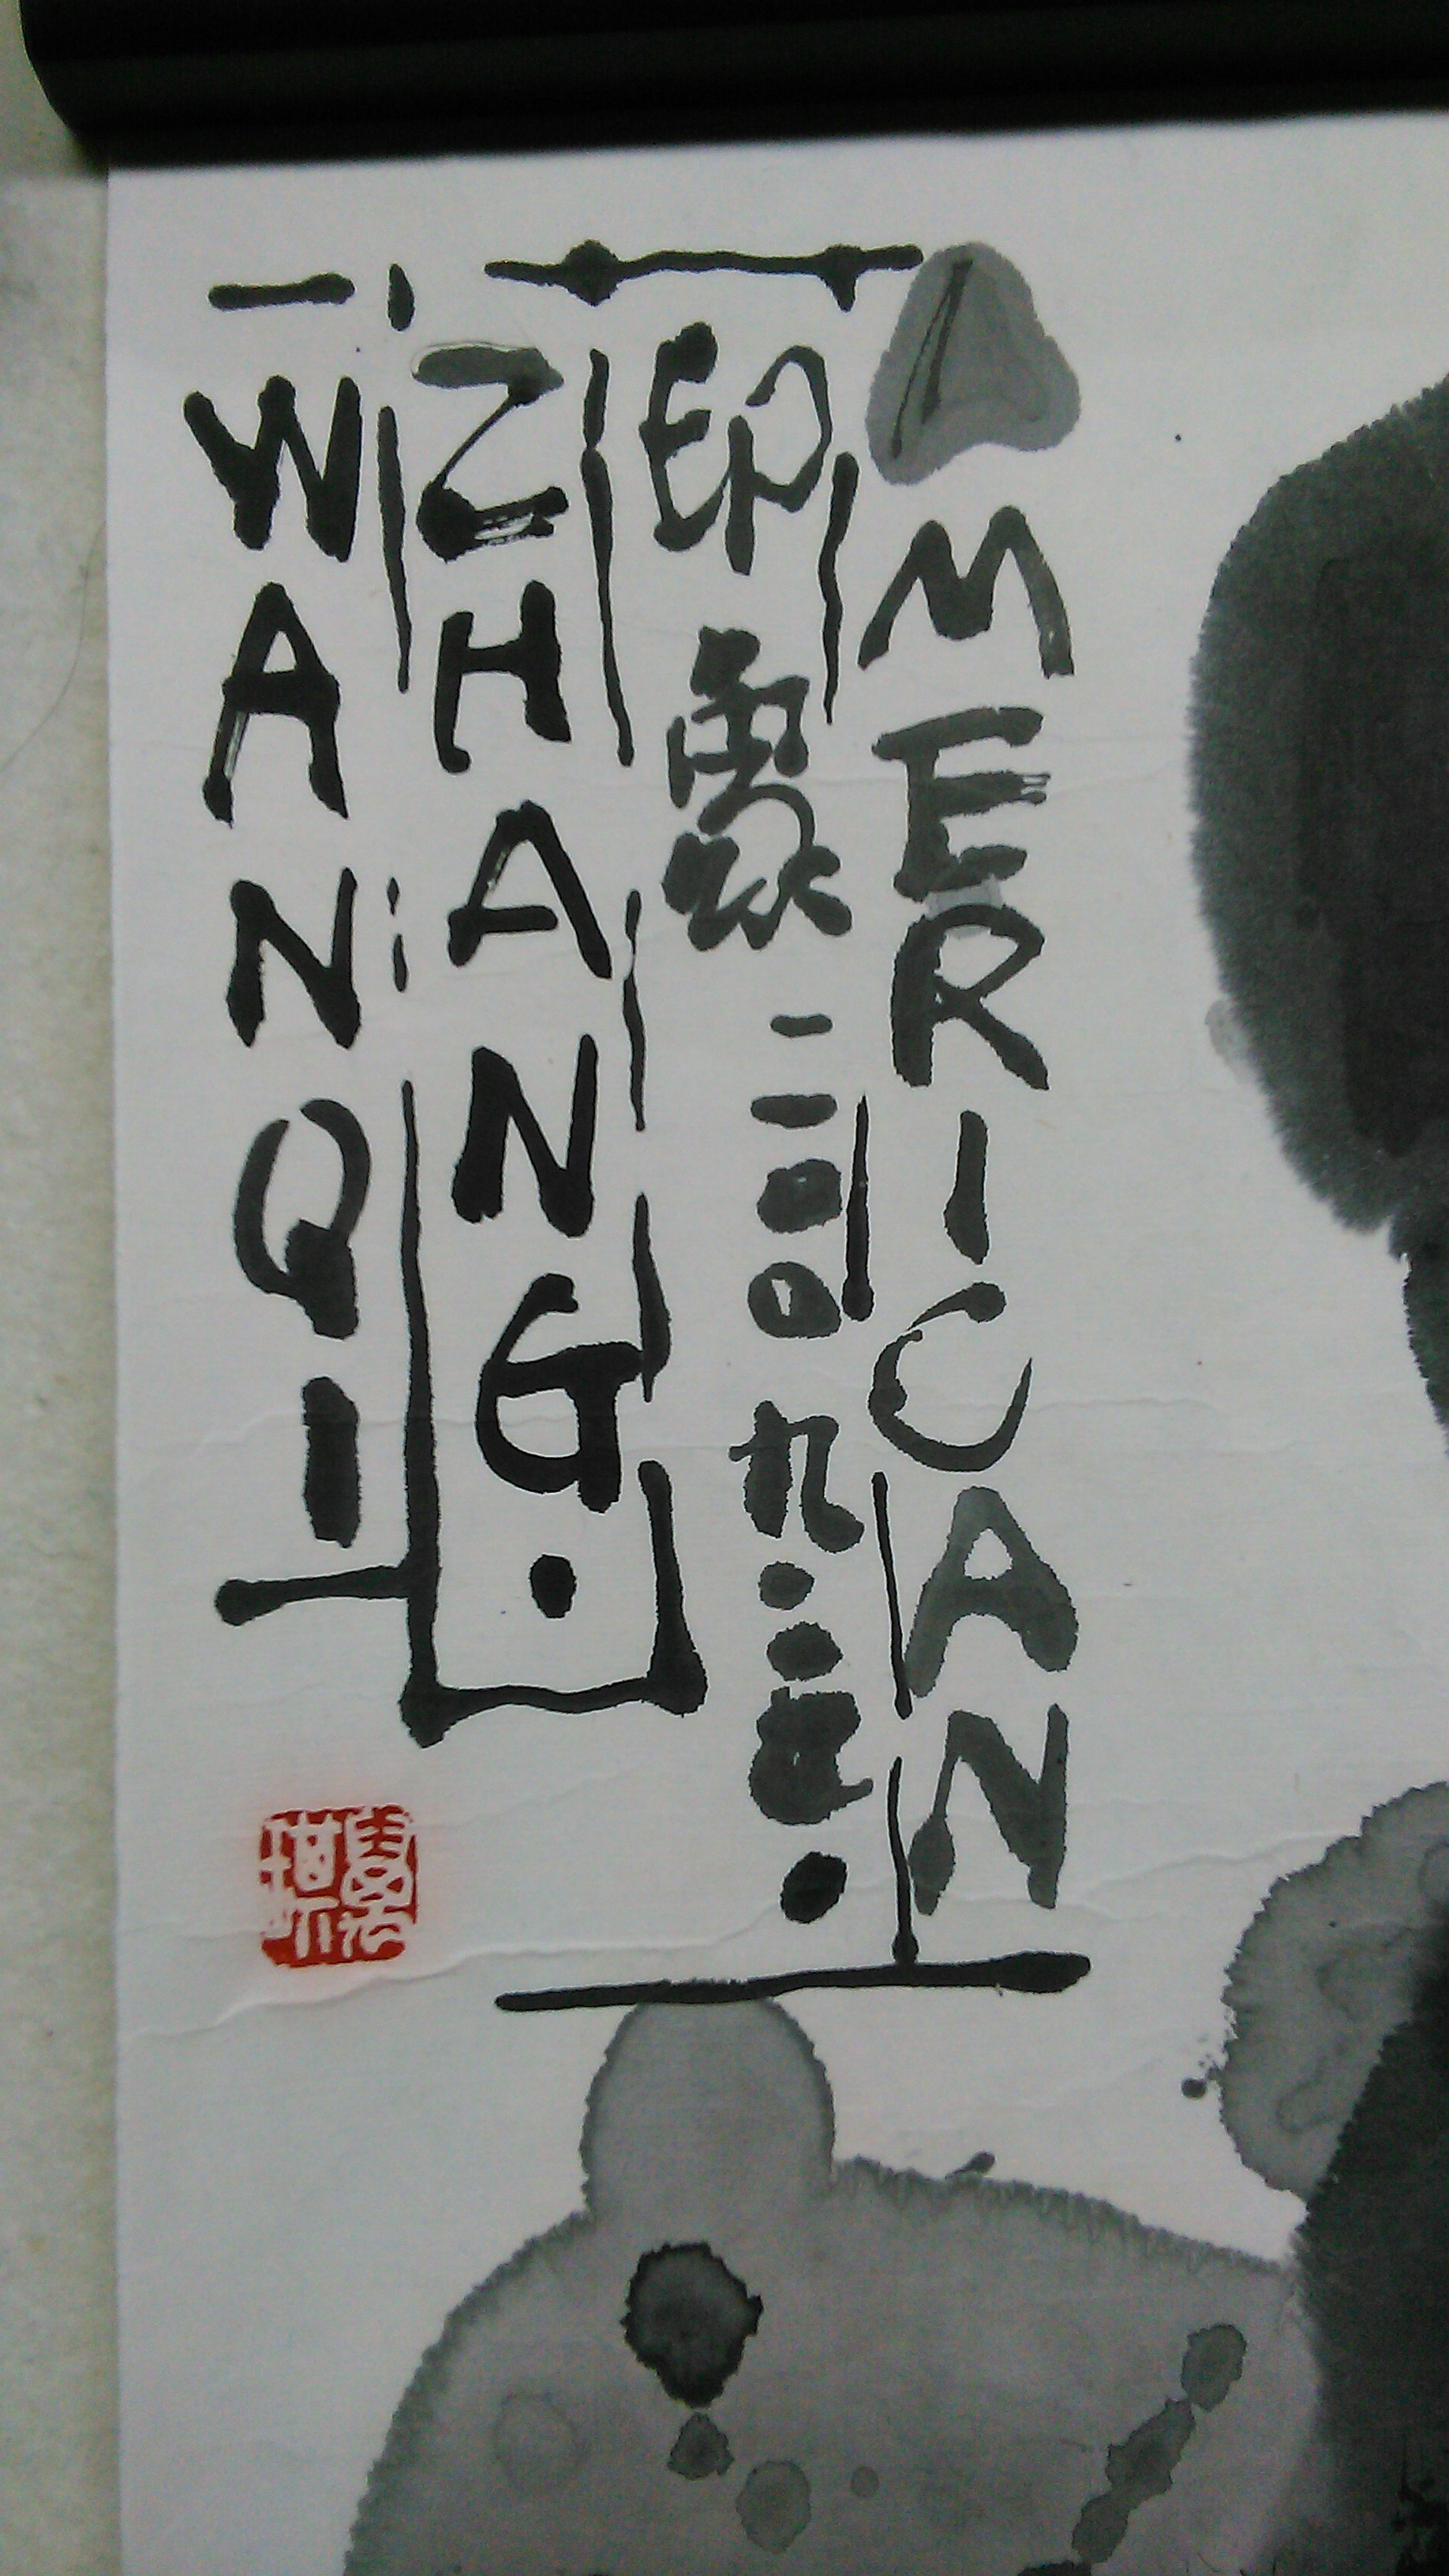 AMERICAN
印象二〇〇九
ZHANG·
WANQI